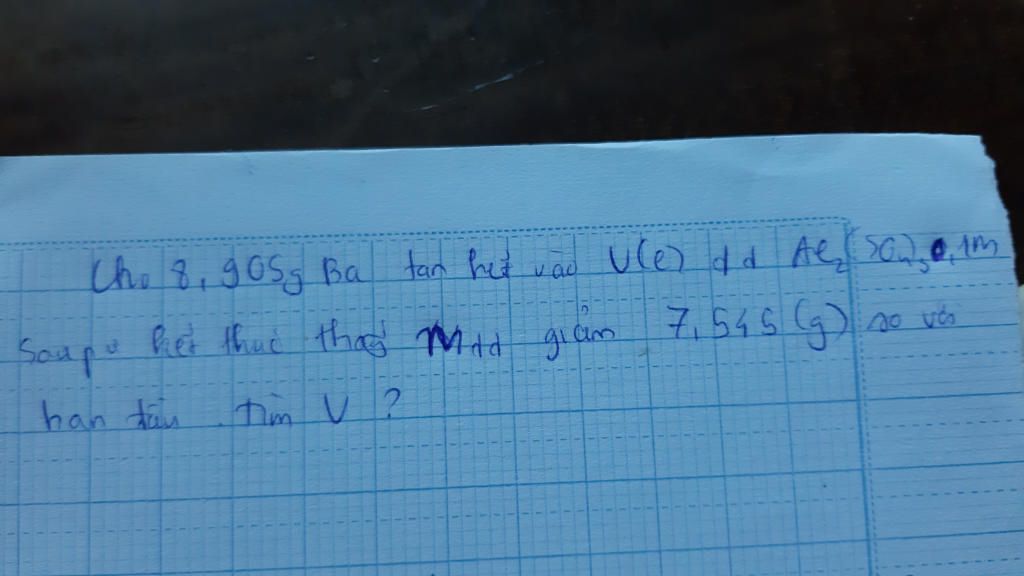 Cho 8,905g Ba tan hết vào V(l) dd Al₂(SO₄)₃ 0,1M
Sau pư kết thúc thấy mdd giảm 7,545(g) so với
ban đầu. tìm V?